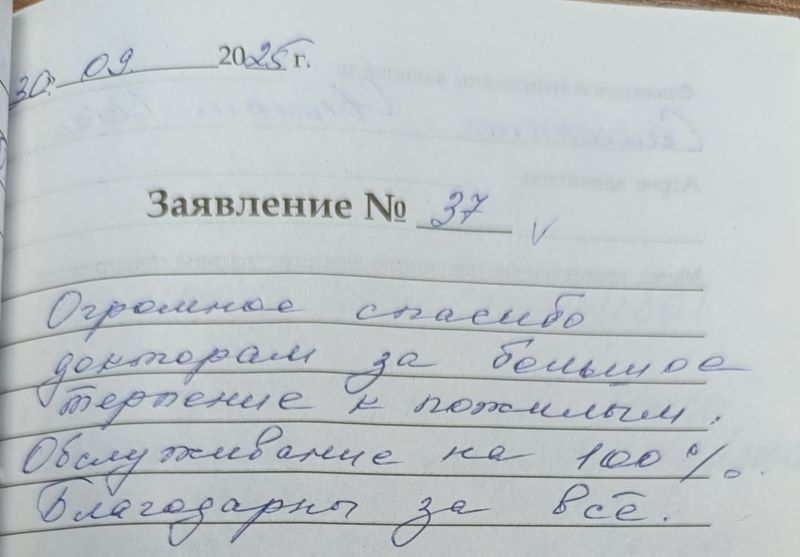 30» 09. 2025 г.
Заявление № 37 v
Огромное спасибо
докторам за большое
терпение к пожилым.
Обслуживание на 100%.
Благодарны за всё.